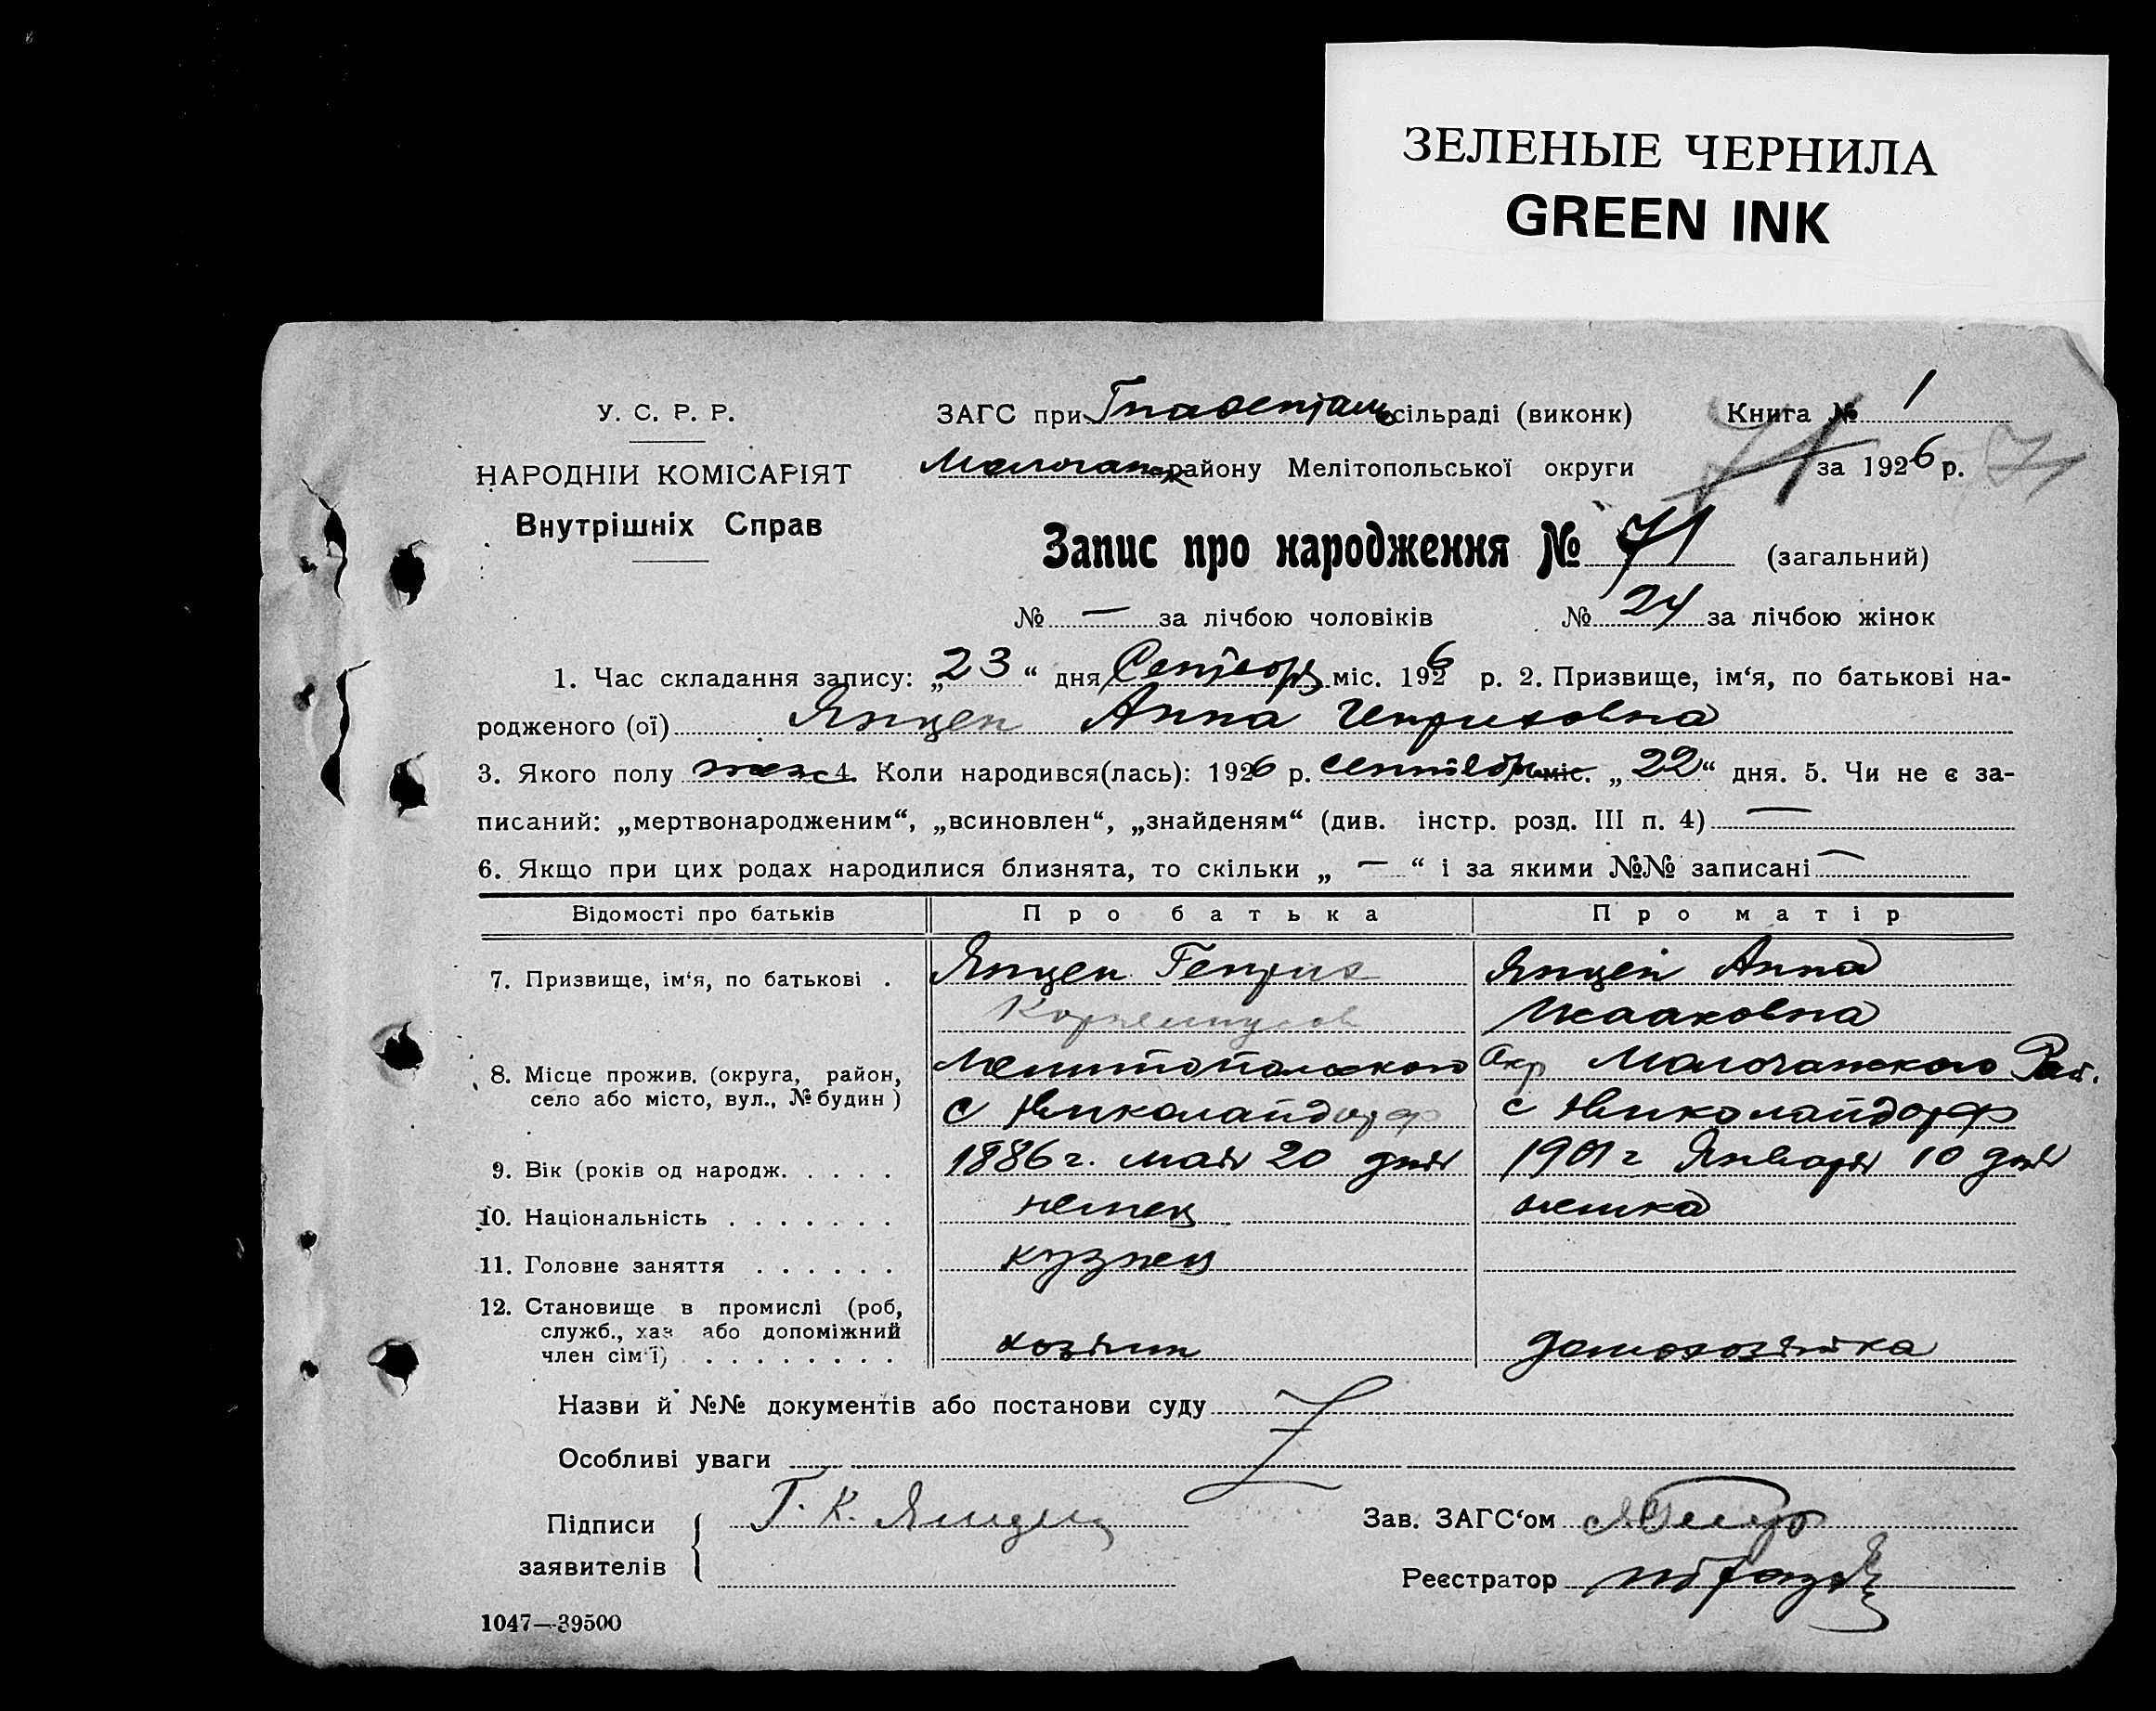 ЗЕЛЕНЫЕ ЧЕРНИЛА
GREEN INK
У. С. Р. Р.
НАРОДНІЙ КОМІСАРІЯТ
Внутрішніх Справ
ЗАГС при Гнаденталь сільраді (виконк) Книга № 1
Молочанск району Мелітопольської округи 71 за 1926 р. 71
Запис про народження № 71 (загальний)
№ — за лічбою чоловіків № 24 за лічбою жінок
1. Час складання запису: „23“ дня Сентября міс. 1926 р. 2. Призвище, ім‘я, по батькові на-
родженого (ої) Янцен Анна Генриховна
3. Якого полу женс 4. Коли народився(лась): 1926 р. сентября міс. „22“ дня. 5. Чи не є за-
писаний: „мертвонародженим“, „всиновлен“, „знайденям“ (див. інстр. розд. III п. 4) —
6. Якщо при цих родах народилися близнята, то скільки „ — “ і за якими №№ записані —
Відомості про батьків Про батька Про матір
7. Призвище, ім‘я, по батькові . Янцен Генрих Янцен Анна
Корнелиусов Исааковна
8. Місце прожив. (округа, район, село або місто, вул., № будин) Мелитопольского Окр Молочанского Рай.
с Николайдорф с Николайдорф
9. Вік (років од народж. . . . . 1886 г. мая 20 дня 1901 г Января 10 дня
10. Національність . . . . . . . немец немка
11. Головне заняття . . . . . . кузнец
12. Становище в промислі (роб, служб., хаз або допоміжний член сім‘ї) . . . . . . . . хозяин домохозяйка
Назви й №№ документів або постанови суду
Особливі уваги
Підписи заявителів Г. К. Янцен
Зав. ЗАГС‘ом
Реєстратор
1047—39500